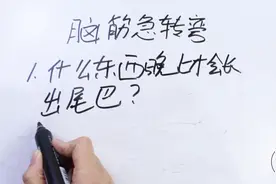 脑筋急转弯
1.什么东西晚上才会长
出尾巴?